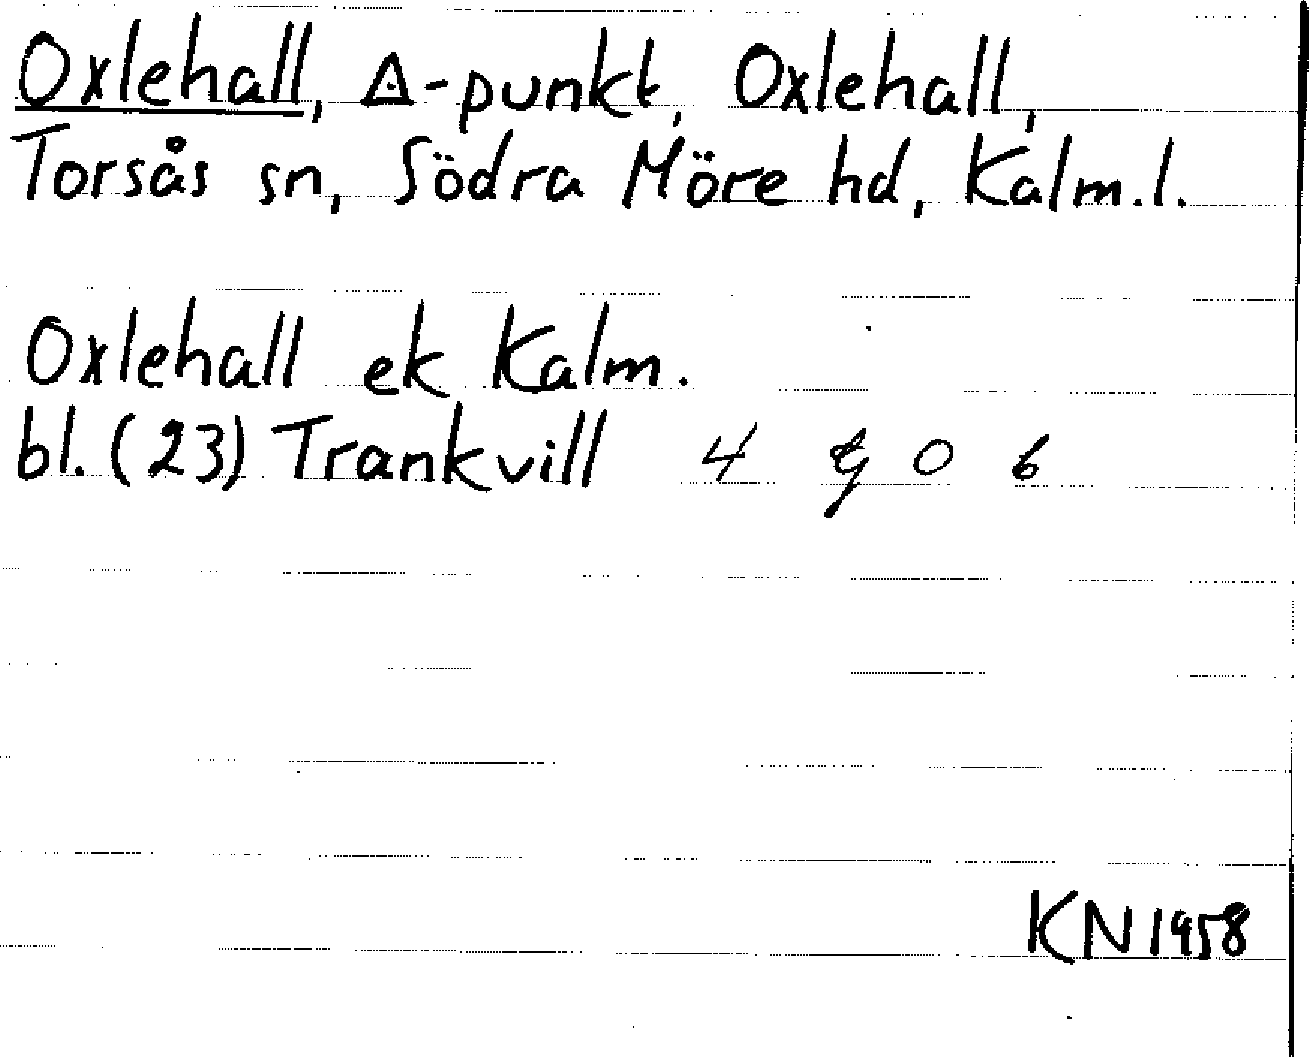 Oxlehall, Δ-punkt, Oxlehall,
Torsås sn, Södra Möre hd, Kalm.l.
Oxlehall ek Kalm.
bl. (23) Trankvill 4 g 0 6
KN 1958